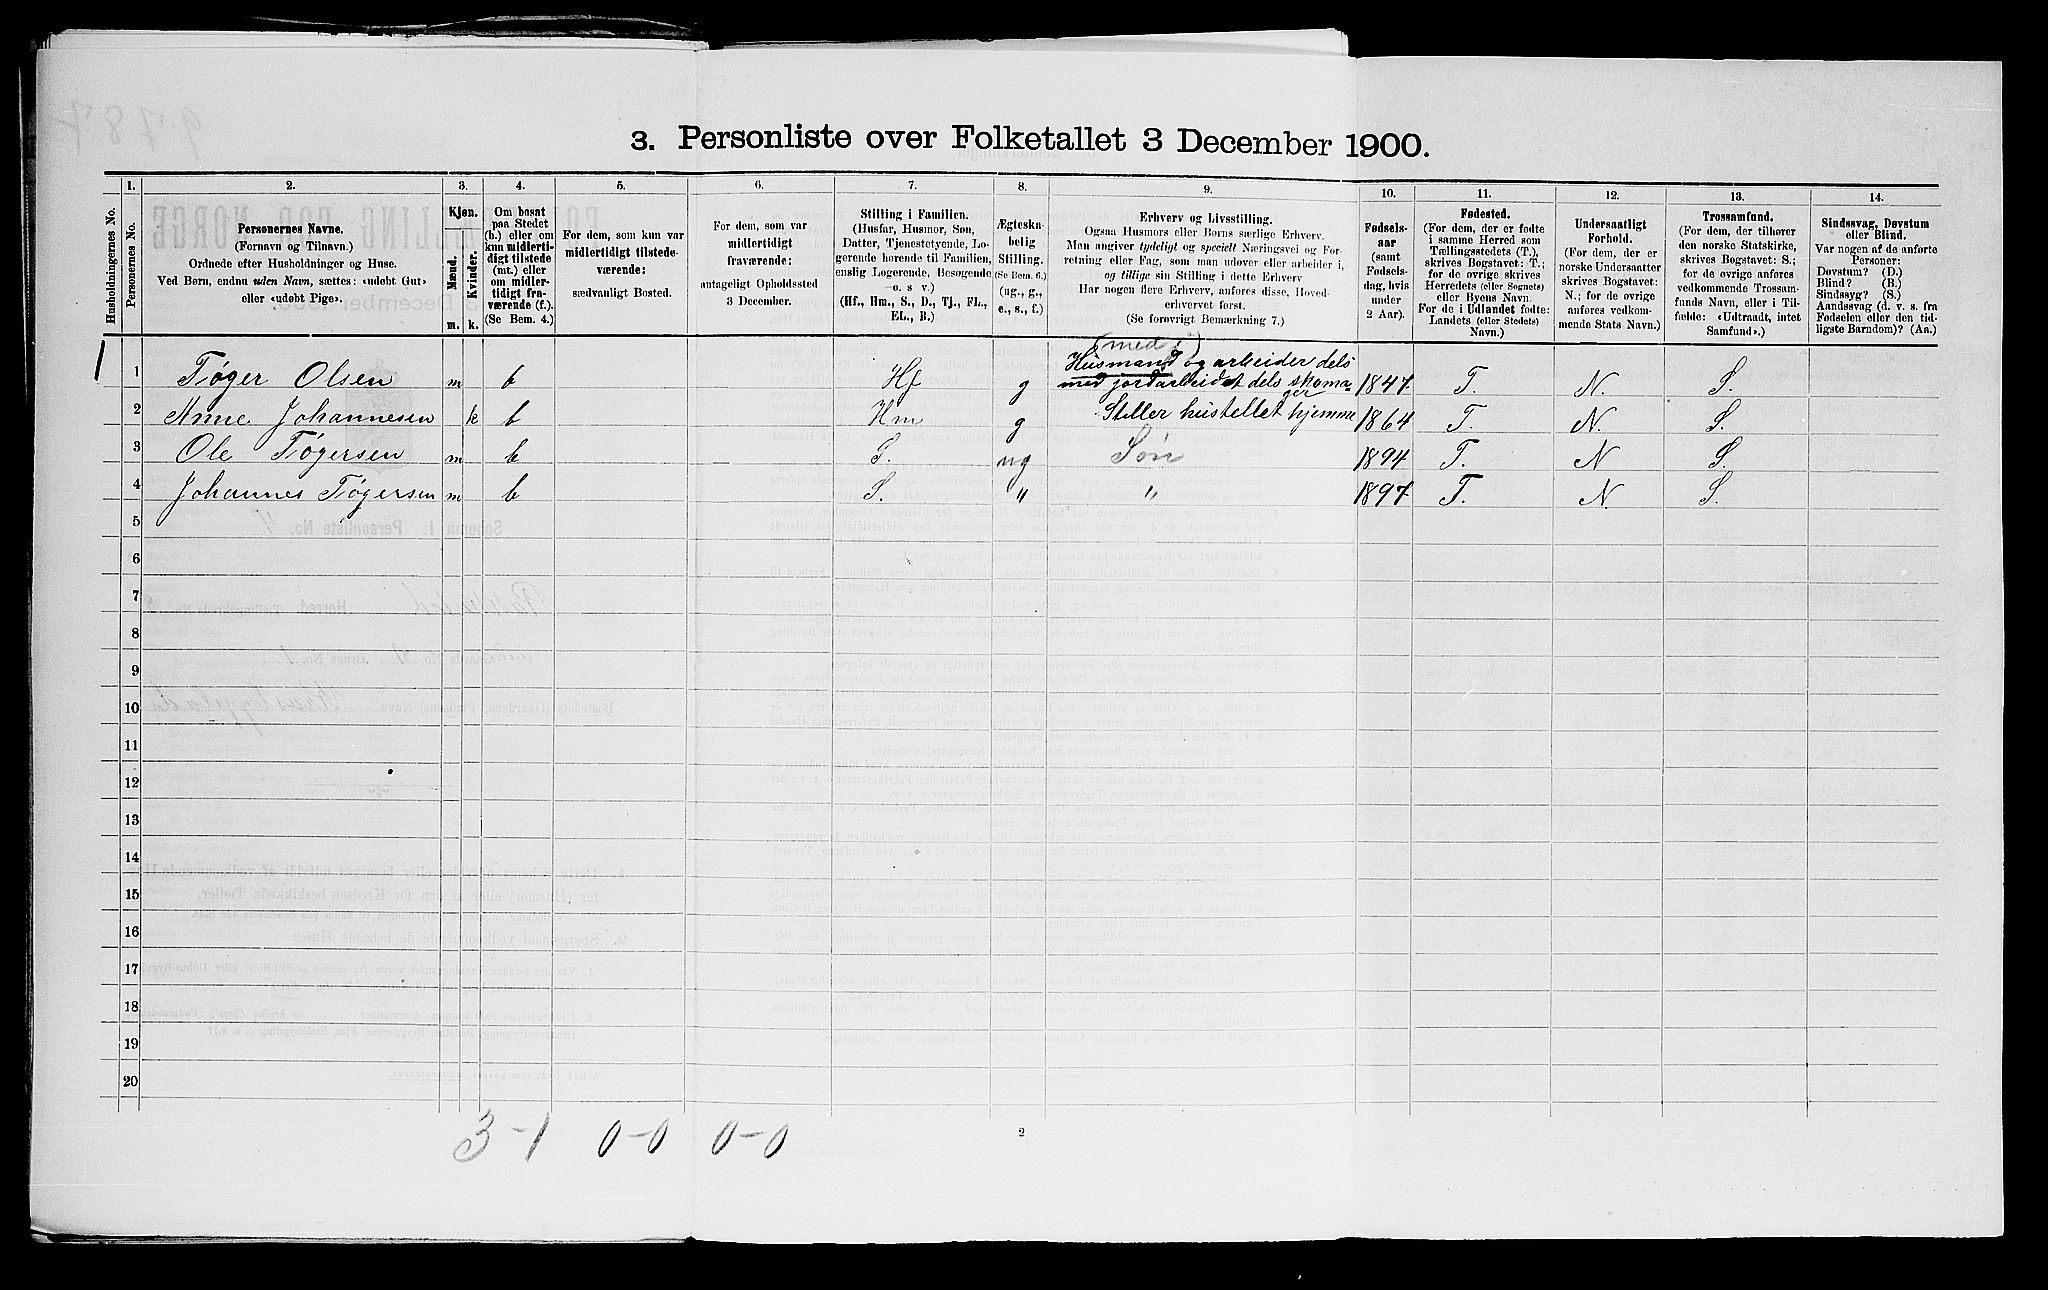 3. Personliste over Folketallet 3 December 1900.
1. 2. 3. 4. 5. 6. 7. 8. 9. 10. 11. 12. 13. 14.
Husholdningernes No.
Personernes No.
Personernes Navne.
(Fornavn og Tilnavn.)
Ordnede efter Husholdninger og Huse.
Ved Børn, endnu uden Navn, sættes: «udøbt Gut»
eller «udøbt Pige».
Kjøn.
Mænd.
Kvinder.
m. k.
Om bosat
paa Stedet
(b.) eller om
kun midlerti-
digt tilstede
(mt.) eller
om midler-
tidigt fra-
værende (f.).
(Se Bem. 4.)
For dem, som kun var
midlertidigt tilstede-
værende:
sædvanligt Bosted.
For dem, som var
midlertidigt
fraværende:
antageligt Opholdssted
3 December.
Stilling i Familien.
(Husfar, Husmor, Søn,
Datter, Tjenestetyende, Lo-
gerende hørende til Familien,
enslig Logerende, Besøgende
o. s v.)
(Hf., Hm., S., D., Tj., FL.,
EL., B.)
Ægteska-
belig
Stilling.
(Se Bem. 6.)
(ug., g.,
e., s., f.)
Erhverv og Livsstilling.
Ogsaa Husmors eller Børns særlige Erhverv.
Man angiver tydeligt og specielt Næringsvei og For-
retning eller Fag, som man udøver eller arbeider i,
og tillige sin Stilling i dette Erhverv.
Har nogen flere Erhverv, anføres disse, Hoved-
erhvervet først.
(Se forøvrigt Bemærkning 7.)
Fødsels-
aar
(samt
Fødsels-
dag, hvis
under
2 Aar).
Fødested.
(For dem, der er fødte
i samme Herred som
Tællingsstedets (T.),
skrives Bogstavet: T.;
for de øvrige skrives
Herredets (eller Sognets)
eller Byens Navn.
For de i Udlandet fødte:
Landets (eller Stedets)
Navn.)
Undersaatligt
Forhold.
(For dem, der er
norske Undersaatter
skrives Bogstavet:
N.; for de øvrige
anføres vedkom-
mende Stats Navn.)
Trossamfund.
(For dem, der tilhører
den norske Statskirke,
skrives Bogstavet: S.;
for de øvrige anføres
vedkommende Trossam-
funds Navn, eller i Til-
fælde: «Udtraadt, intet
Samfund».)
Sindssvag, Døvstum
eller Blind.
Var nogen af de anførte
Personer:
Døvstum? (D.)
Blind? (B.)
Sindssyg? (S.)
Aandssvag (d. v. s. fra
Fødselen eller den tid-
ligste Barndom)? (Aa.)
(med i)
Husmand og arbeider dels
1 1 Tøger Olsen m b Hf g med jordarbeidet dels skomager 1847 T. N. S.
2 Anne Johannesen k b Hm g Steller hustellet hjemme 1864 T. N. S.
3 Ole Tøgersen m b S. ug Søn 1894 T. N S.
4 Johannes Tøgersen m b S. " " 1897 T. N. S.
5
6
7
8
9
10
11
12
13
14
15
16
17
18
19
20
3-1 0-0 0-0
2